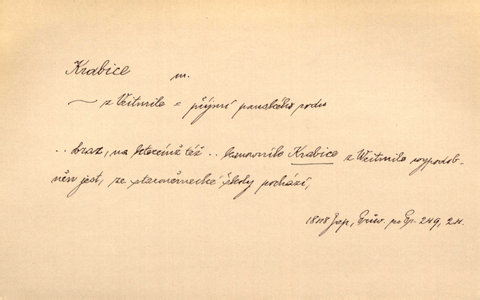 Krabice m.
~ z Veitmile = příjmí panského rodu
.. obraz, na kterémž též .. kanovník Krabice z Weitmile vypodob-
něn jest, ze staroněmecké školy pochází,
1818 249, 24.